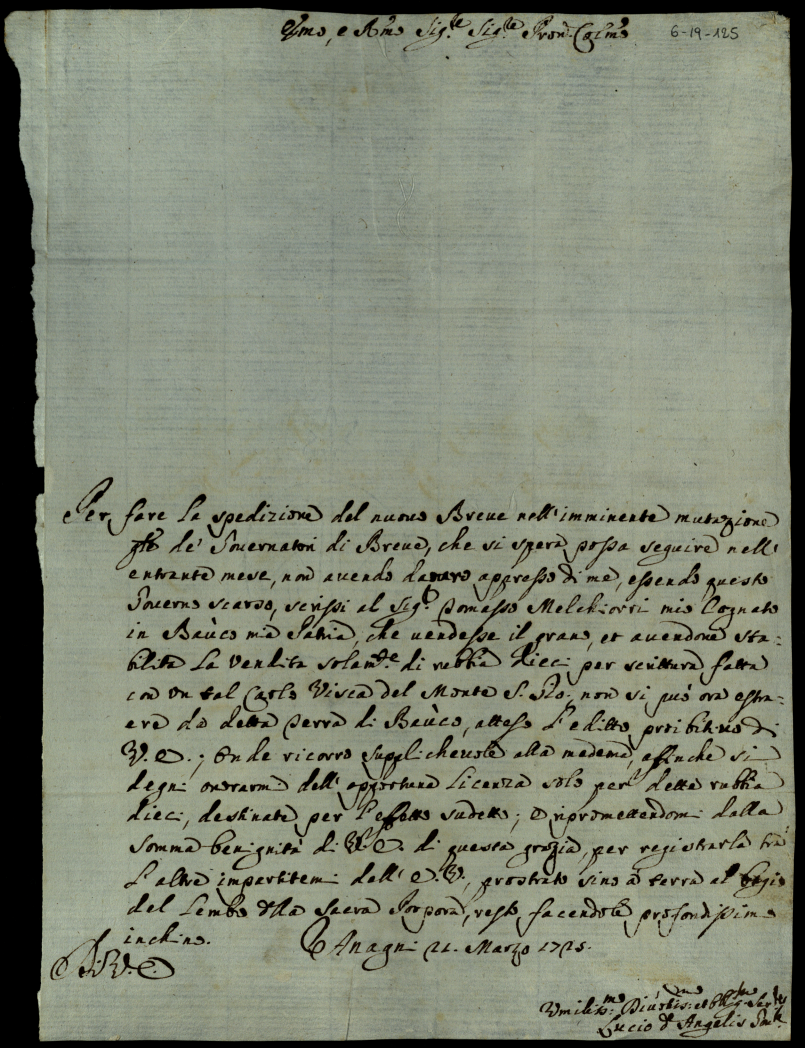 Emo, e Rmo Sig.re Sig.re Pron Colmo
6-19-125
Per fare la spedizione del nuovo Breve nell'imminente mutazione
de' Governatori di Breve, che si spera possa seguire nell'
entrante mese, non avendo danaro appresso di me, essendo questo
Governo scarso, scrissi al Sig.r Tomasso Melchiorri mio Cognato
in Baùco mia Patria, che vendesse il grano, et avendone sta=
bilita la vendita solam.te di rubbia dieci per scrittura fatta
con un tal Carlo Visca del Monte S. Gio: non si può ora estra=
ere da detta Terra di Baùco, atteso l'editto proibitivo di
V. E.; Onde ricorro supplichevole alla medema, affinche si
degni onorarmi dell'opportuna Licenza solo per dette rubbia
dieci, destinate per l'effetto sudetto; e ripromettendomi dalla
somma benignità di V. E. di questa grazia, per registrarla trà
l'altre impartitemi dall'E. V., prostrato sino à terra al bagio
del Lembo della Sacra Porpora, resto facendole profondissimo
inchino. Anagni 21. Marzo 1725.
D. V. E.
Umiliss.mo Divotis: et Obl.mo Ser.re
Lucio d'Angelis Gov.re